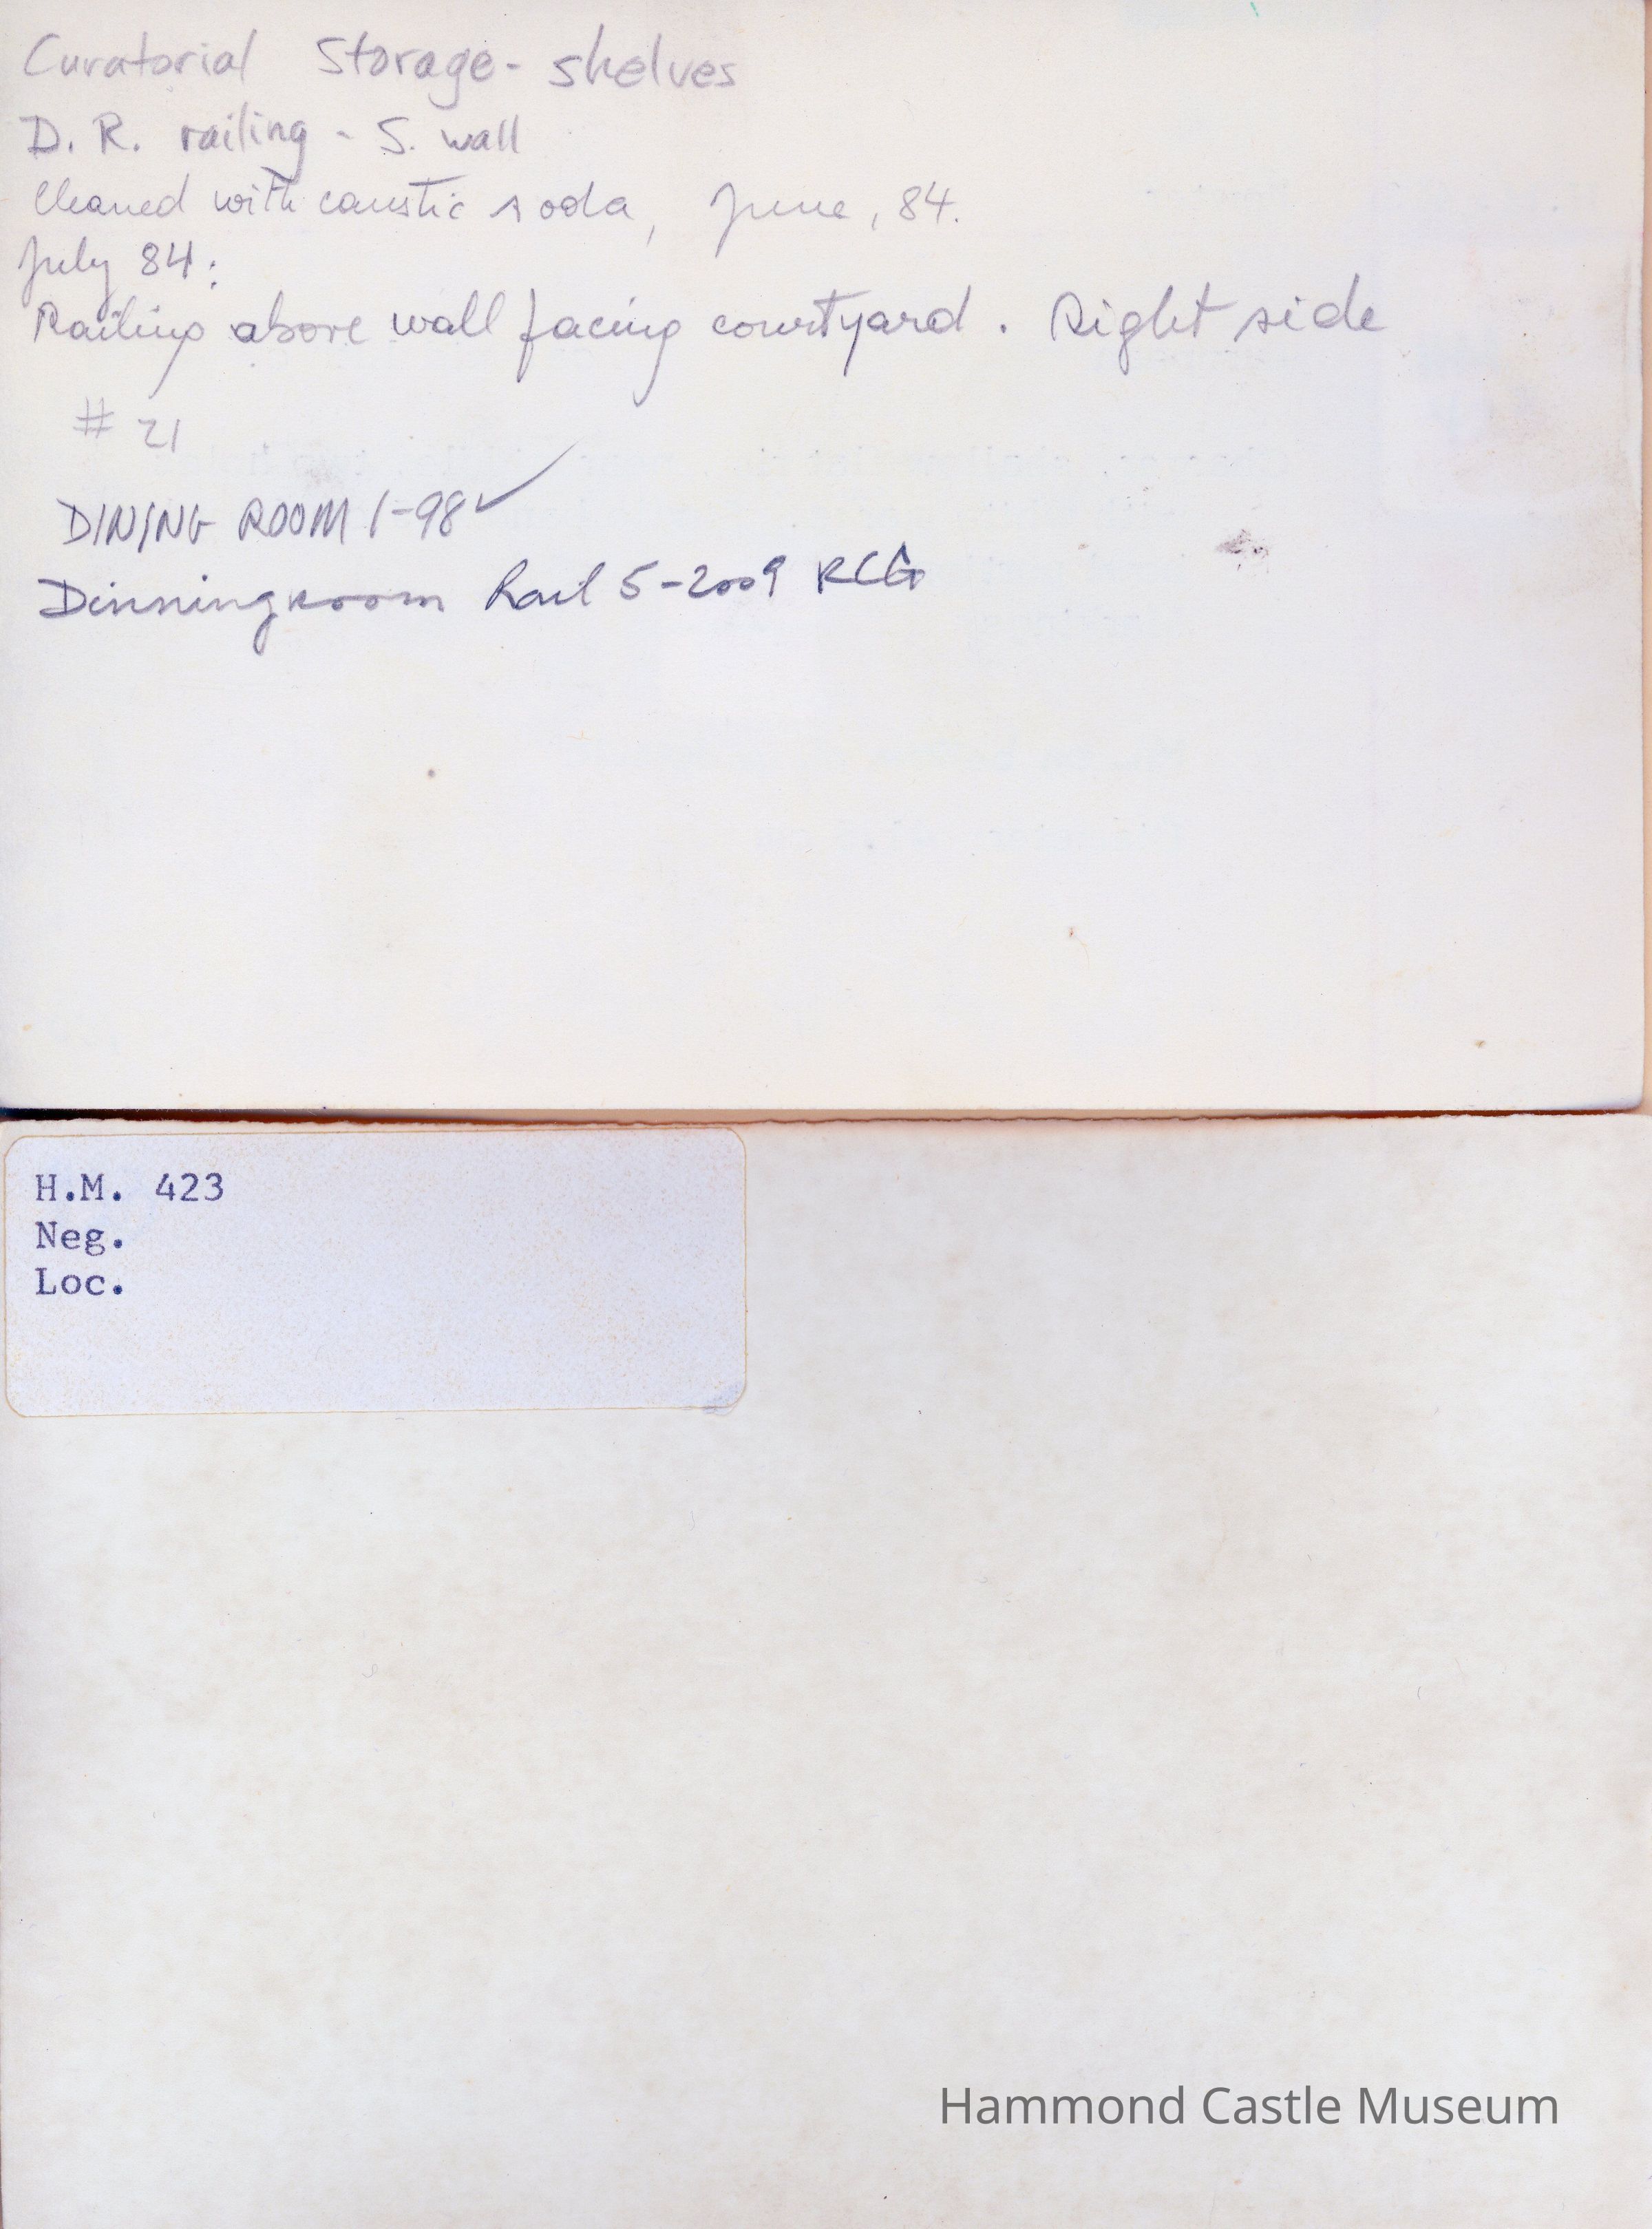 Curatorial Storage - shelves
D. R. railing - S. wall
Cleaned with caustic soda, June, 84.
July 84:
Railing above wall facing courtyard. Right side
# 21
DINING ROOM 1-98 ✓
Dinningroom Rail 5-2009 RCG
H.M. 423
Neg.
Loc.
Hammond Castle Museum